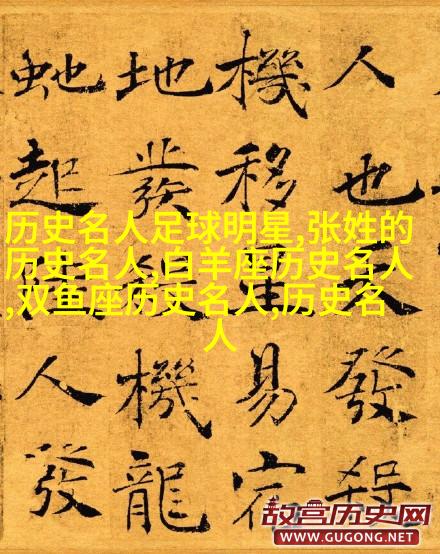 人也天發殺
機移星易宿
地發機龍
虵起人發
历史名人足球明星,张姓的
历史名人,白羊座历史名人
,双鱼座历史名人,历史名
人
故宫历史网
WWW.GUGONG.NET